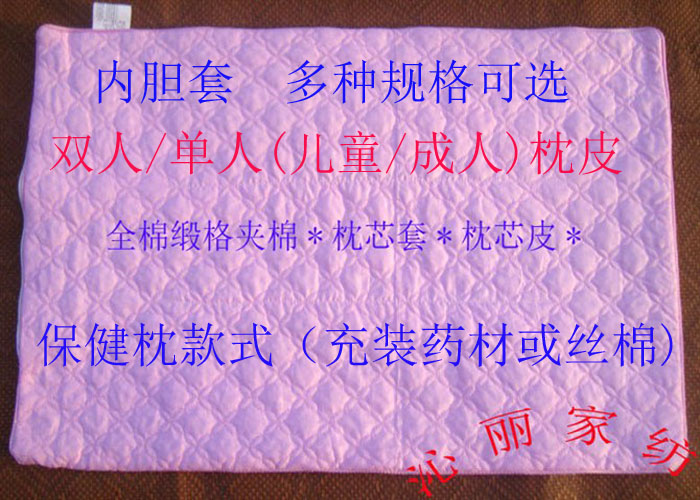 内胆套 多种规格可选
双人/单人(儿童/成人)枕皮
全棉缎格夹棉*枕芯套*枕芯皮*
保健枕款式（充装药材或丝棉)
沁丽家纺